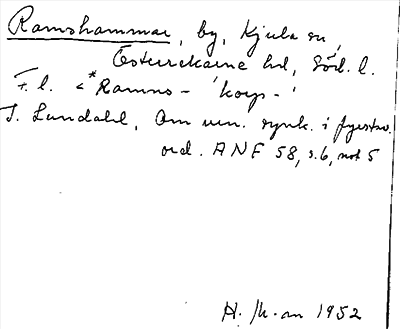 Ramshammar, by, Kjula sn,
Österrekarne hd, Söd. l.
F. l. < *Ramns- 'korp-'
I. Lundahl, Om urn. synk. i fyrstav.
ord. ANF 58, s. 6, not 5
H. M-an 1952